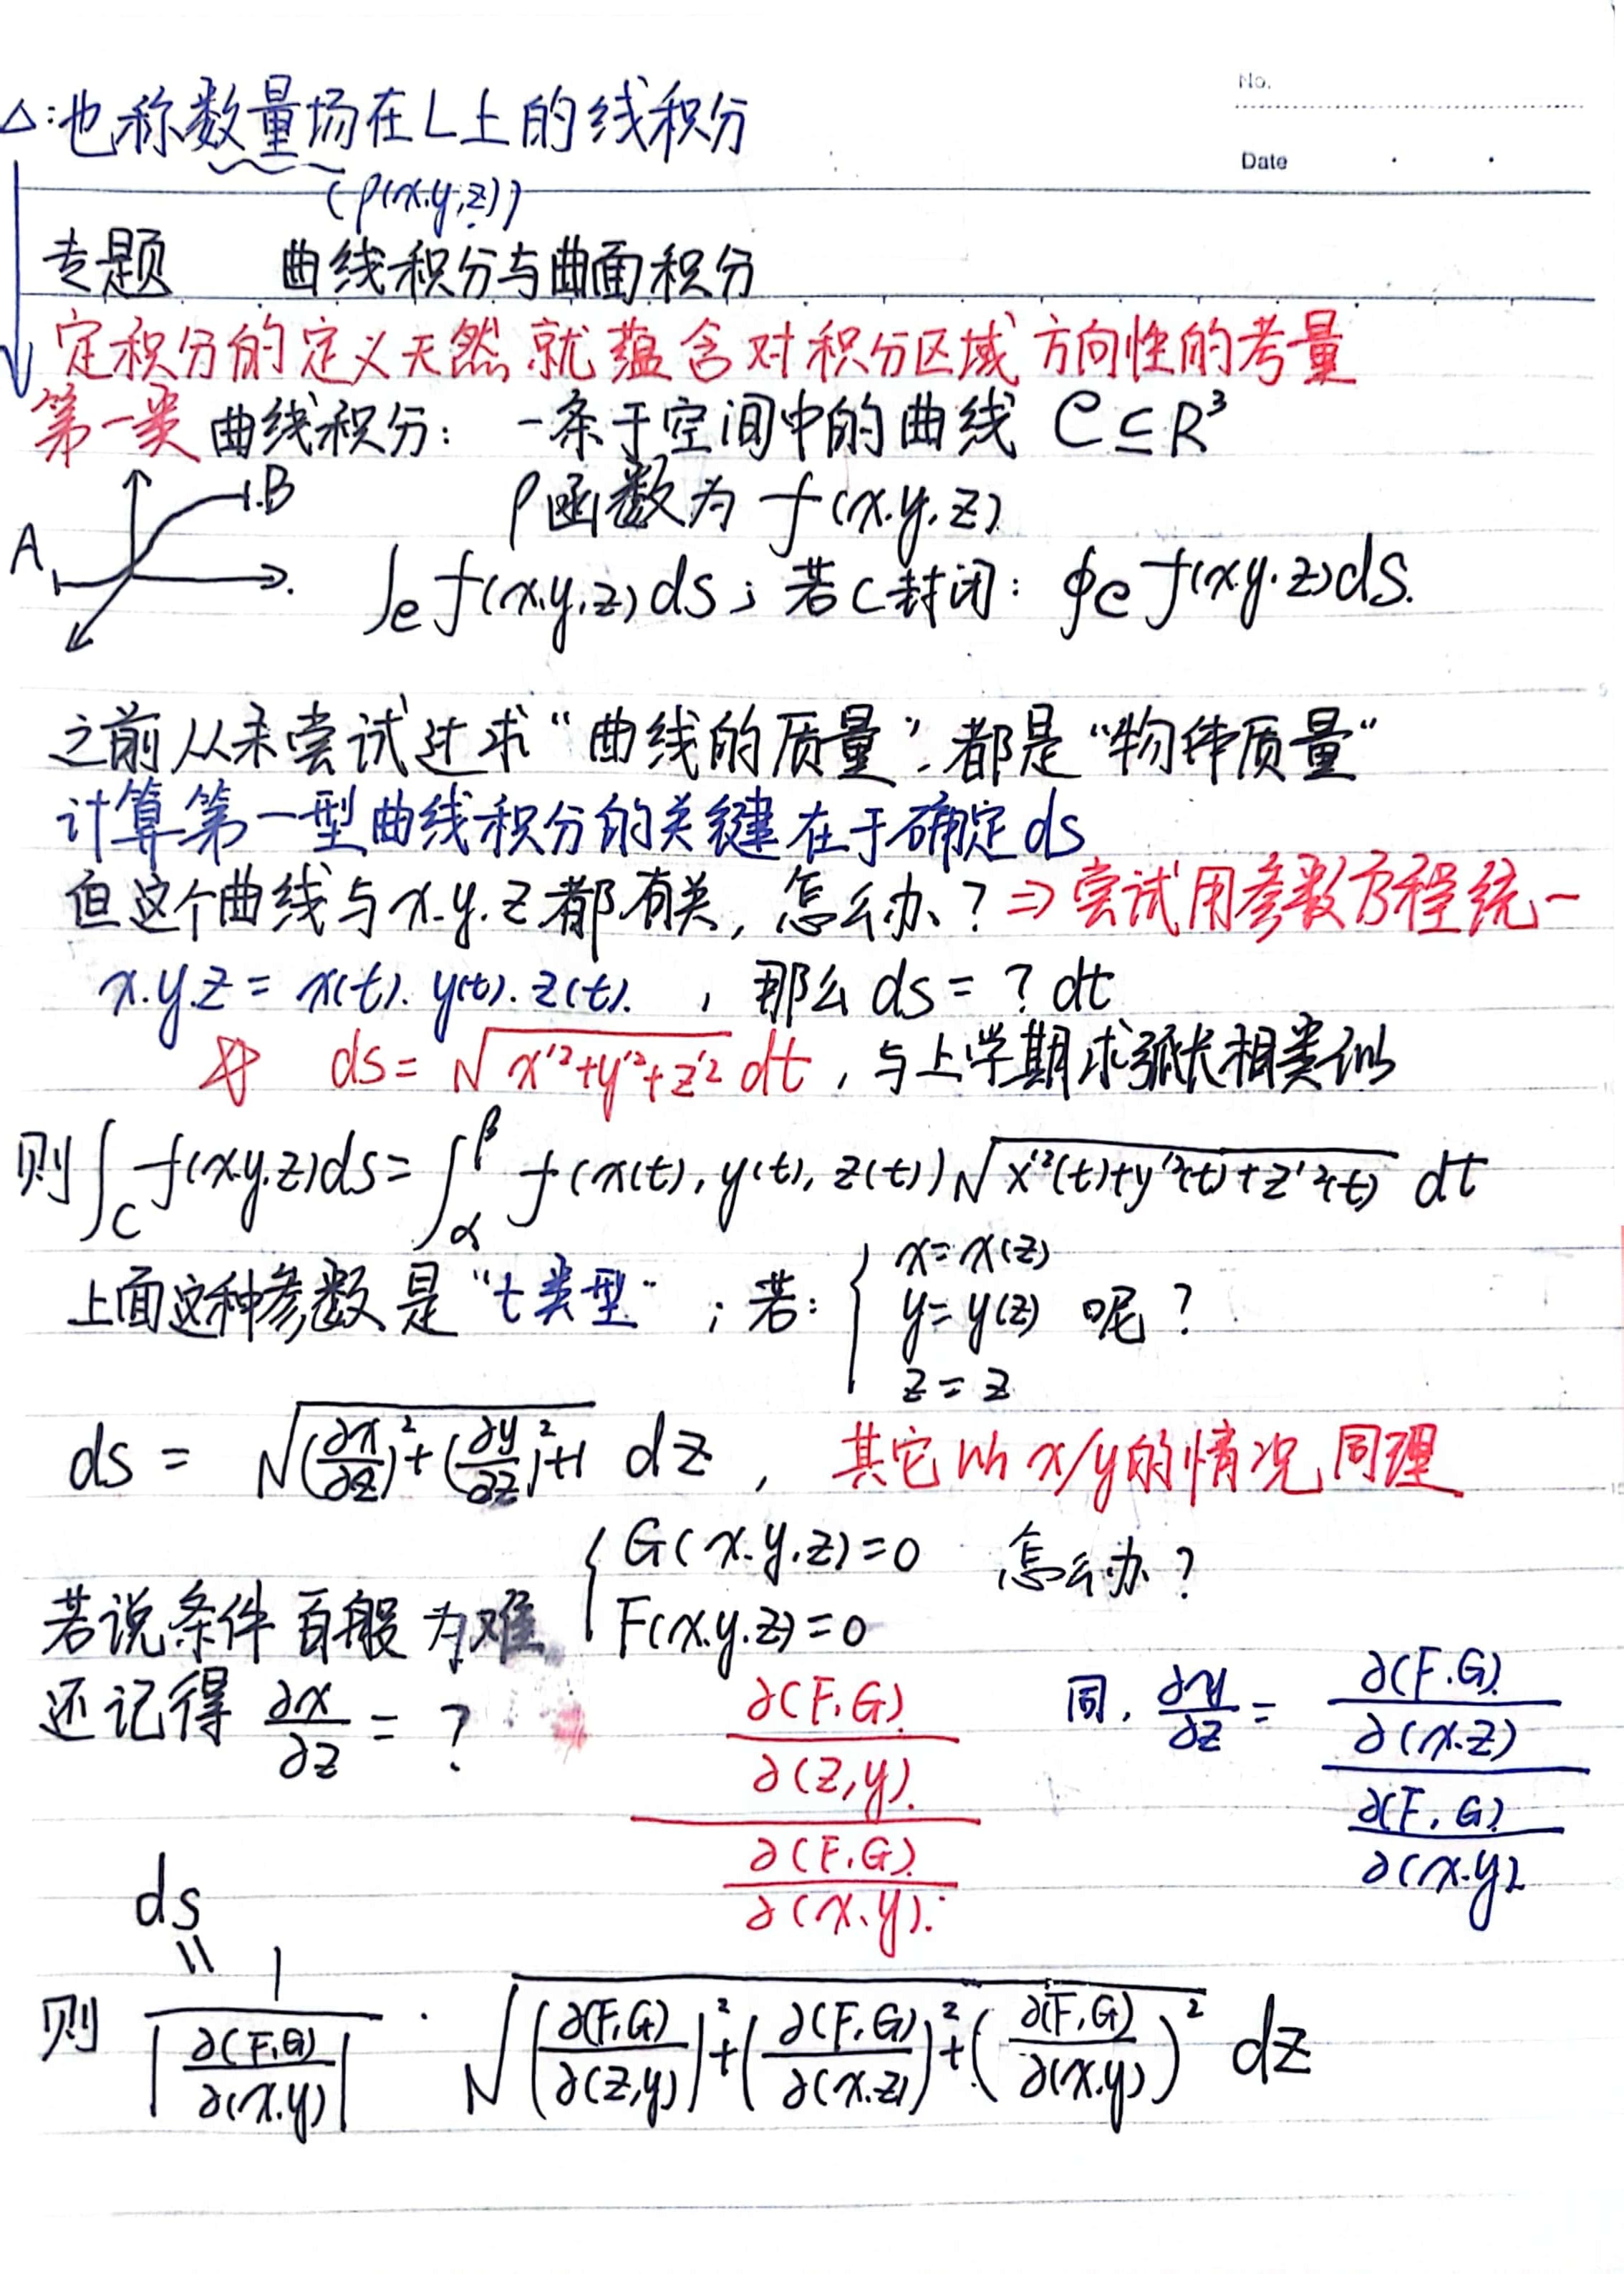 No.
△:也称数量场在L上的线积分
Date
(ρ(x.y,z))
专题 曲线积分与曲面积分
定积分的定义天然就蕴含对积分区域方向性的考量
第一类曲线积分: 一条于空间中的曲线 C⊆R³
ρ函数为 f(x.y.z)
A B
∫_C f(x,y,z)ds; 若C封闭: ∮_C f(x.y.z)ds.
之前从未尝试过求“曲线的质量”,都是“物体质量”
计算第一型曲线积分的关键在于确定ds
但这个曲线与x.y.z都有关, 怎么办? ⇒尝试用参数方程统一
x.y.z = x(t).y(t).z(t). , 那么 ds = ? dt
ds = √(x'²+y'²+z'²) dt, 与上学期求弧长相类似
则∫_C f(x.y.z)ds = ∫_α^β f(x(t),y(t),z(t))√(x'²(t)+y'²(t)+z'²(t)) dt
上面这种参数是“t类型” ; 若: { x=x(z)
y=y(z) 呢?
z=z
ds = √((∂x/∂z)²+(∂y/∂z)²+1) dz, 其它以x/y的情况同理
若说条件百般为难 { G(x.y.z)=0 怎么办?
F(x.y.z)=0
还记得 ∂x/∂z = ? (∂(F,G)/∂(z,y))/(∂(F,G)/∂(x,y)) 同, ∂y/∂z = (∂(F.G)/∂(x.z))/(∂(F,G)/∂(x.y))
ds
=
则 1/|∂(F,G)/∂(x.y)| · √((∂(F,G)/∂(z,y))²+(∂(F,G)/∂(x.z))²+(∂(F,G)/∂(x.y))²) dz